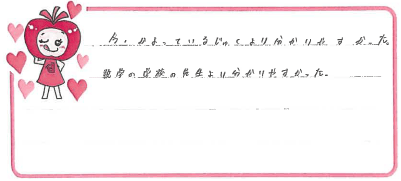 今、かよっているじゅくより分かりやすかった。
数学の家族の先生より分かりやすかった。